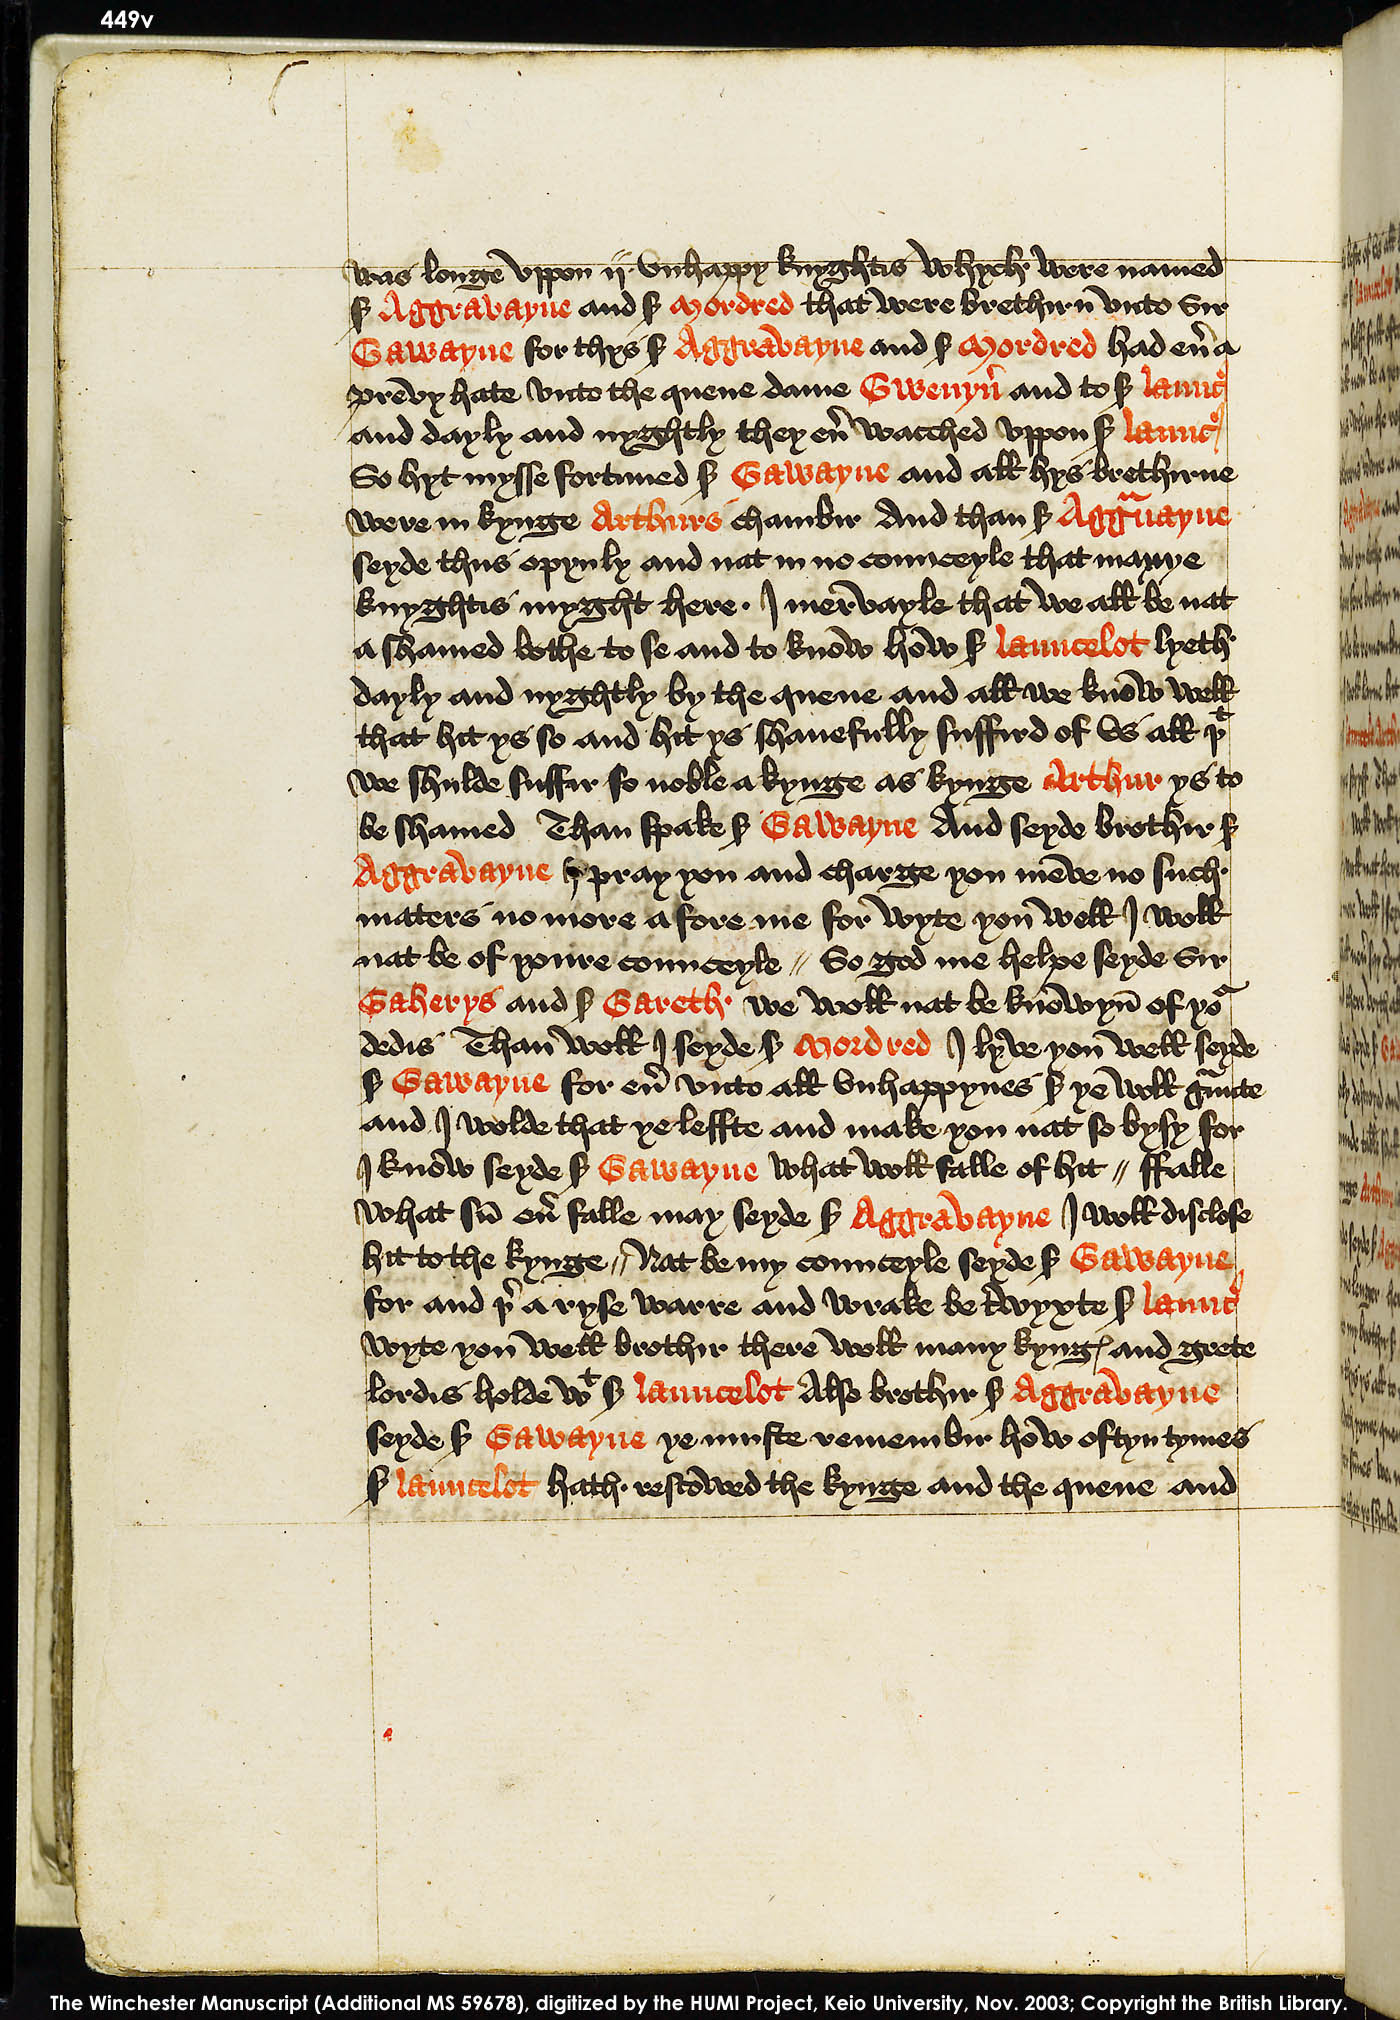 449v
was longe vppon ij vnhappy knyghtis whych were named
sʳ Aggravayne and sʳ Mordred that were brethirn vnto Sir
Gawayne for thys sʳ Aggravayne and sʳ Mordred had eu̅ a
prevy hate vnto the quene dame Gwenyu̅ and to sʳ launc̉
and dayly and nyghtly they eu̅ wacched vppon sʳ launc̉
So hyt mysse fortuned sʳ Gawayne and all hys brethirne
were in kynge Arthurs chambir And than sʳ Aggᵃuayne
seyde thus opynly and nat in no counceyle that manye
knyghtis myght here. I mervayle that we all be nat
a shamed bothe to se and to know how sʳ launcelot lyeth
dayly and nyghtly by the quene and all we know well
that hit ys so and hit ys shanefully suffird of vs all þᵗ
we shulde suffir so noble a kynge as kynge Arthur ys to
be shamed Than spake sʳ Gawayne And seyde brothir sʳ
Aggravayne I pray you and charge you meve no such
maters no more a fore me for wyte you well I woll
nat be of youre counceyle // So god me helpe seyde Sir
Gaherys and sʳ Gareth we woll nat be knowyn̄ of yoᵃ
dedis Than woll I seyde sʳ Mordred I lyve you well seyde
sʳ Gawayne for eu̅ vnto all vnhappynes sʳ ye woll gᵃunte
and I wolde that ye leffte and make you nat so bysy for
I know seyde sʳ Gawayne what woll falle of hit // ffalle
what su̅ eu̅ falle may seyde sʳ Aggravayne I woll disclose
hit to the kynge // Nat be my counceyle seyde sʳ Gawayne
for and þ̉ a ryse warre and wrake be twyxte sʳ launc̉
wyte you well brothir there woll many kyngꝭ and grete
lordis holde wᵗ sʳ launcelot Also brothir sʳ Aggravayne
seyde sʳ Gawayne ye muste remembir how oftyn tymes
sʳ launcelot hath rescowed the kynge and the quene and
The Winchester Manuscript (Additional MS 59678), digitized by the HUMI Project, Keio University, Nov. 2003; Copyright the British Library.